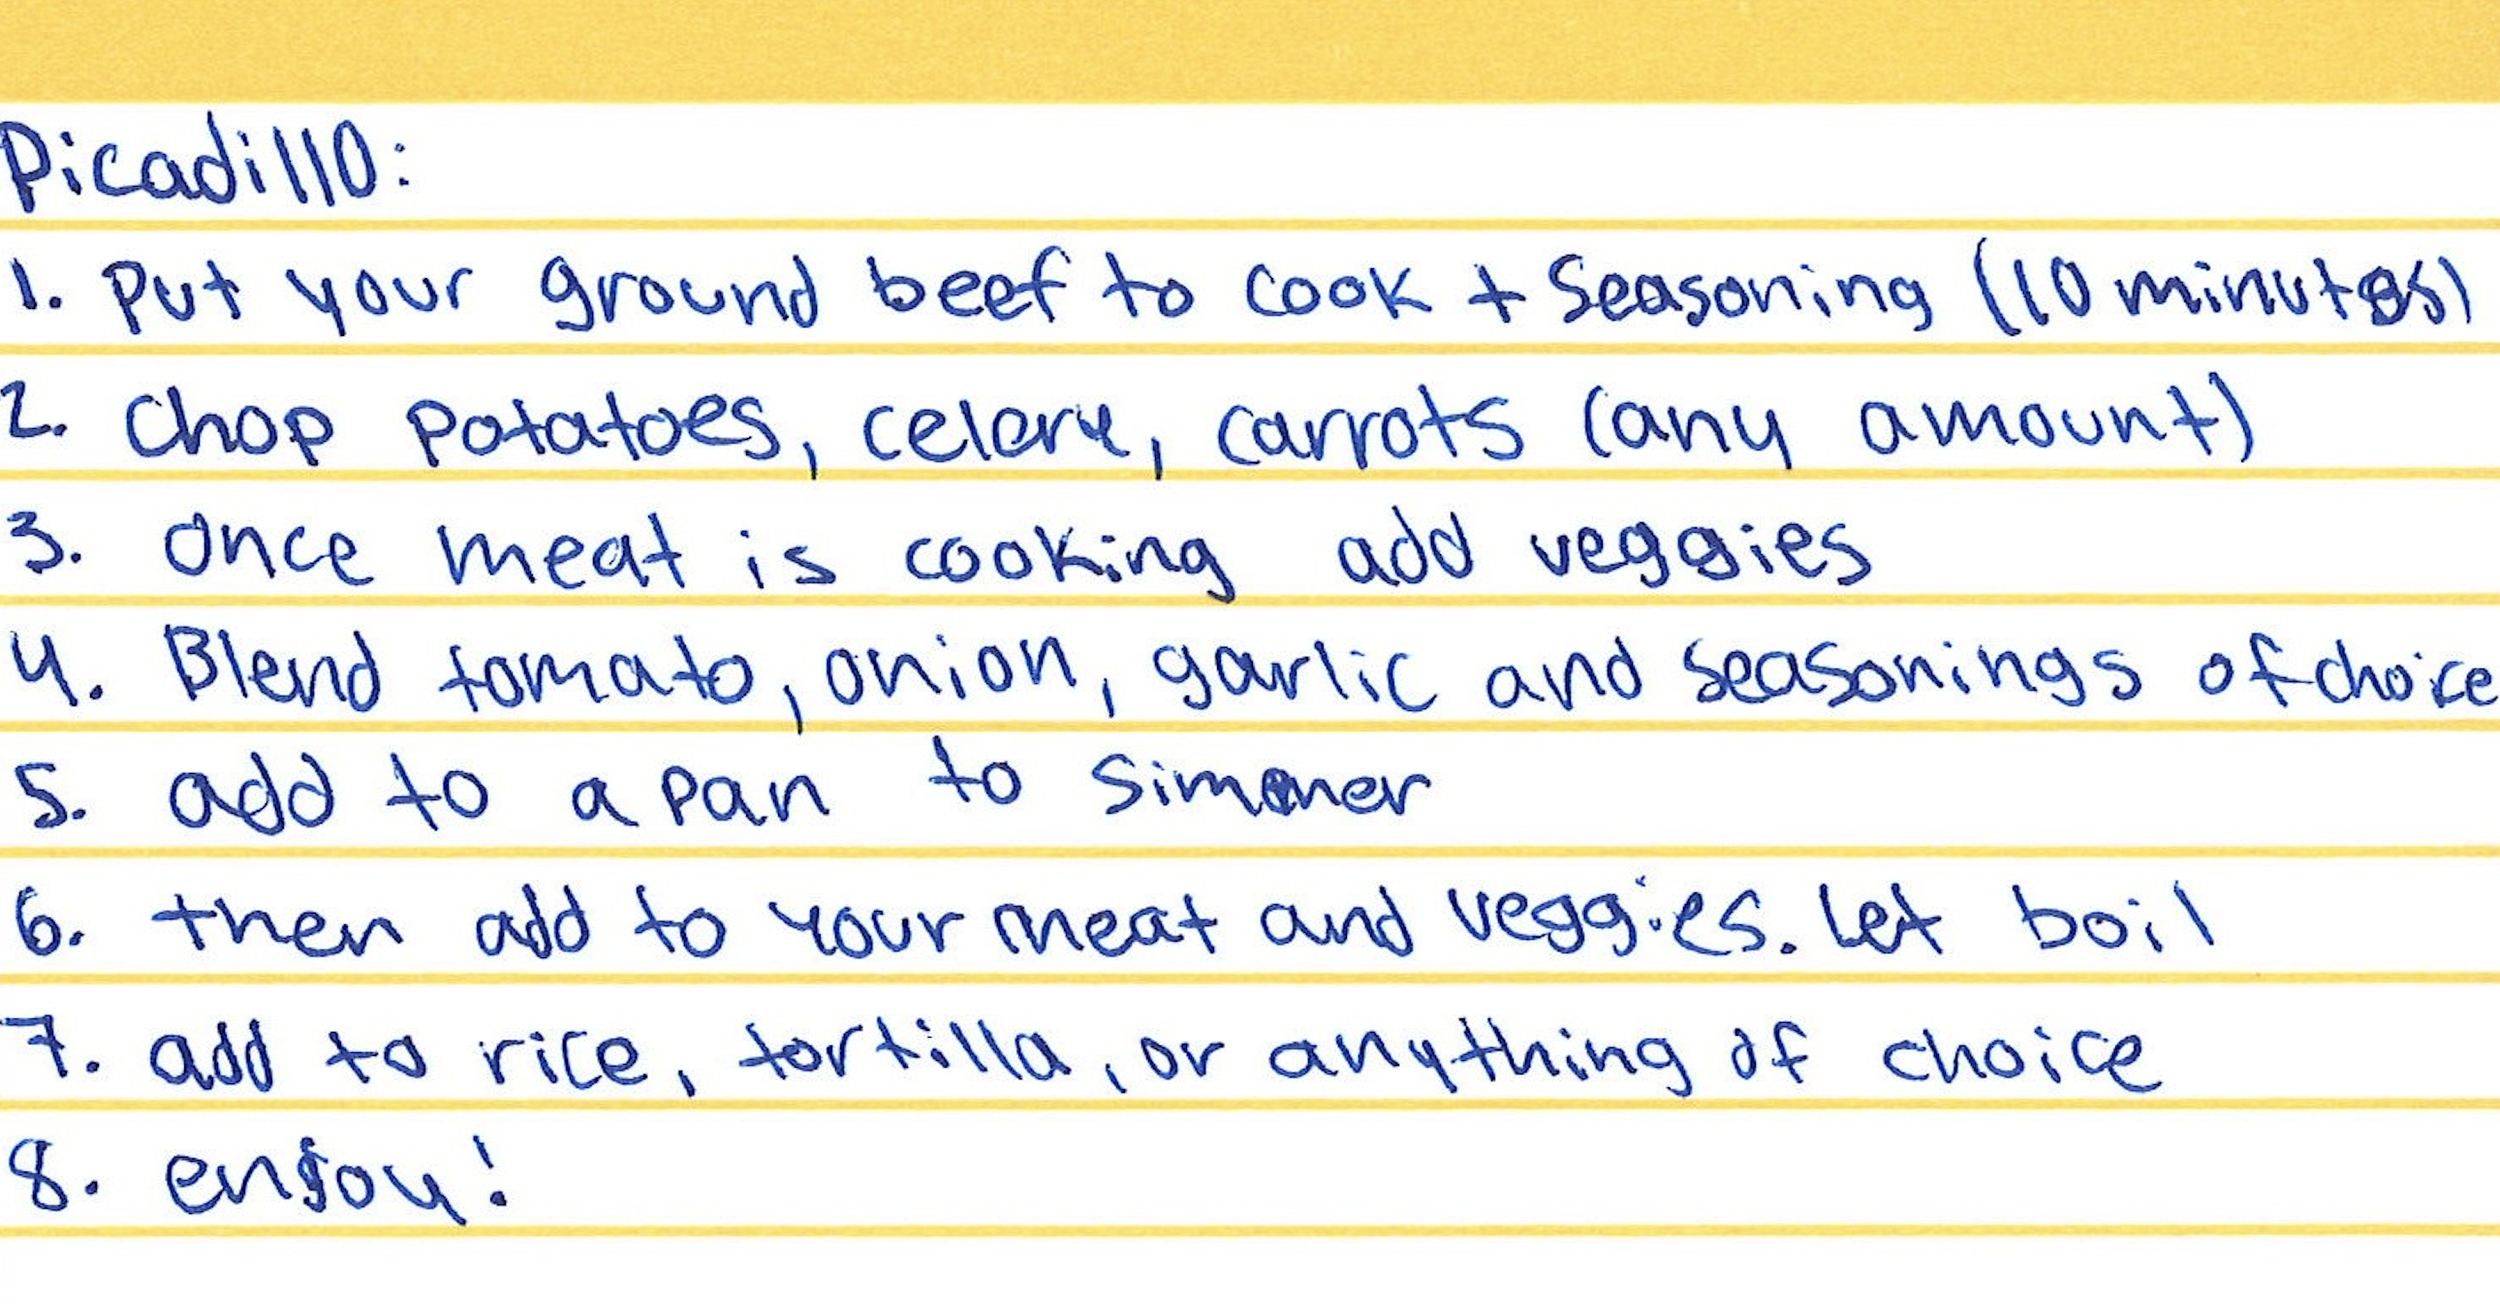 Picadillo:
1. Put your ground beef to cook + Seasoning (10 minutes)
2. Chop potatoes, celery, carrots (any amount)
3. Once meat is cooking add veggies
4. Blend tomato, onion, garlic and seasonings of choice
5. add to a pan to simmer
6. then add to your meat and veggies. Let boil
7. add to rice, tortilla, or anything of choice
8. enjoy!